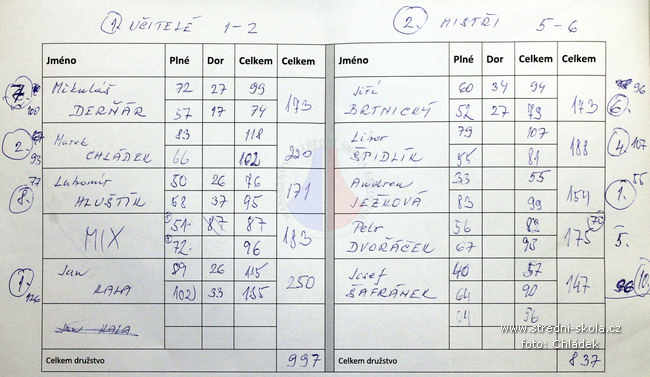 1. UČITELÉ 1-2
2. MISTŘI 5-6
Jméno Plné Dor Celkem Celkem
Mikuláš 72 27 99
DERŇÁR 57 17 74 173
Marek 83 118
CHLÁDEK 66 102 220
Lubomír 50 26 76
HLUŠTÍK 58 37 95 171
MIX 51 87 87
72 96 183
Jan 89 26 115
KALA 102 33 135 250
JAN KALA
Celkem družstvo 997
Jméno Plné Dor Celkem Celkem
Jiří 60 34 94
BRTNICKÝ 52 27 79 173
Libor 79 107
ŠPIDLÍK 55 81 188
Andrea 33 55
JEŽKOVÁ 83 99 154
Petr 56 82
DVOŘÁČEK 67 93 175
Josef 40 57
ŠAFRÁNEK 64 90 147
56
Celkem družstvo 837
www.stredni-skola.cz
foto: Chládek